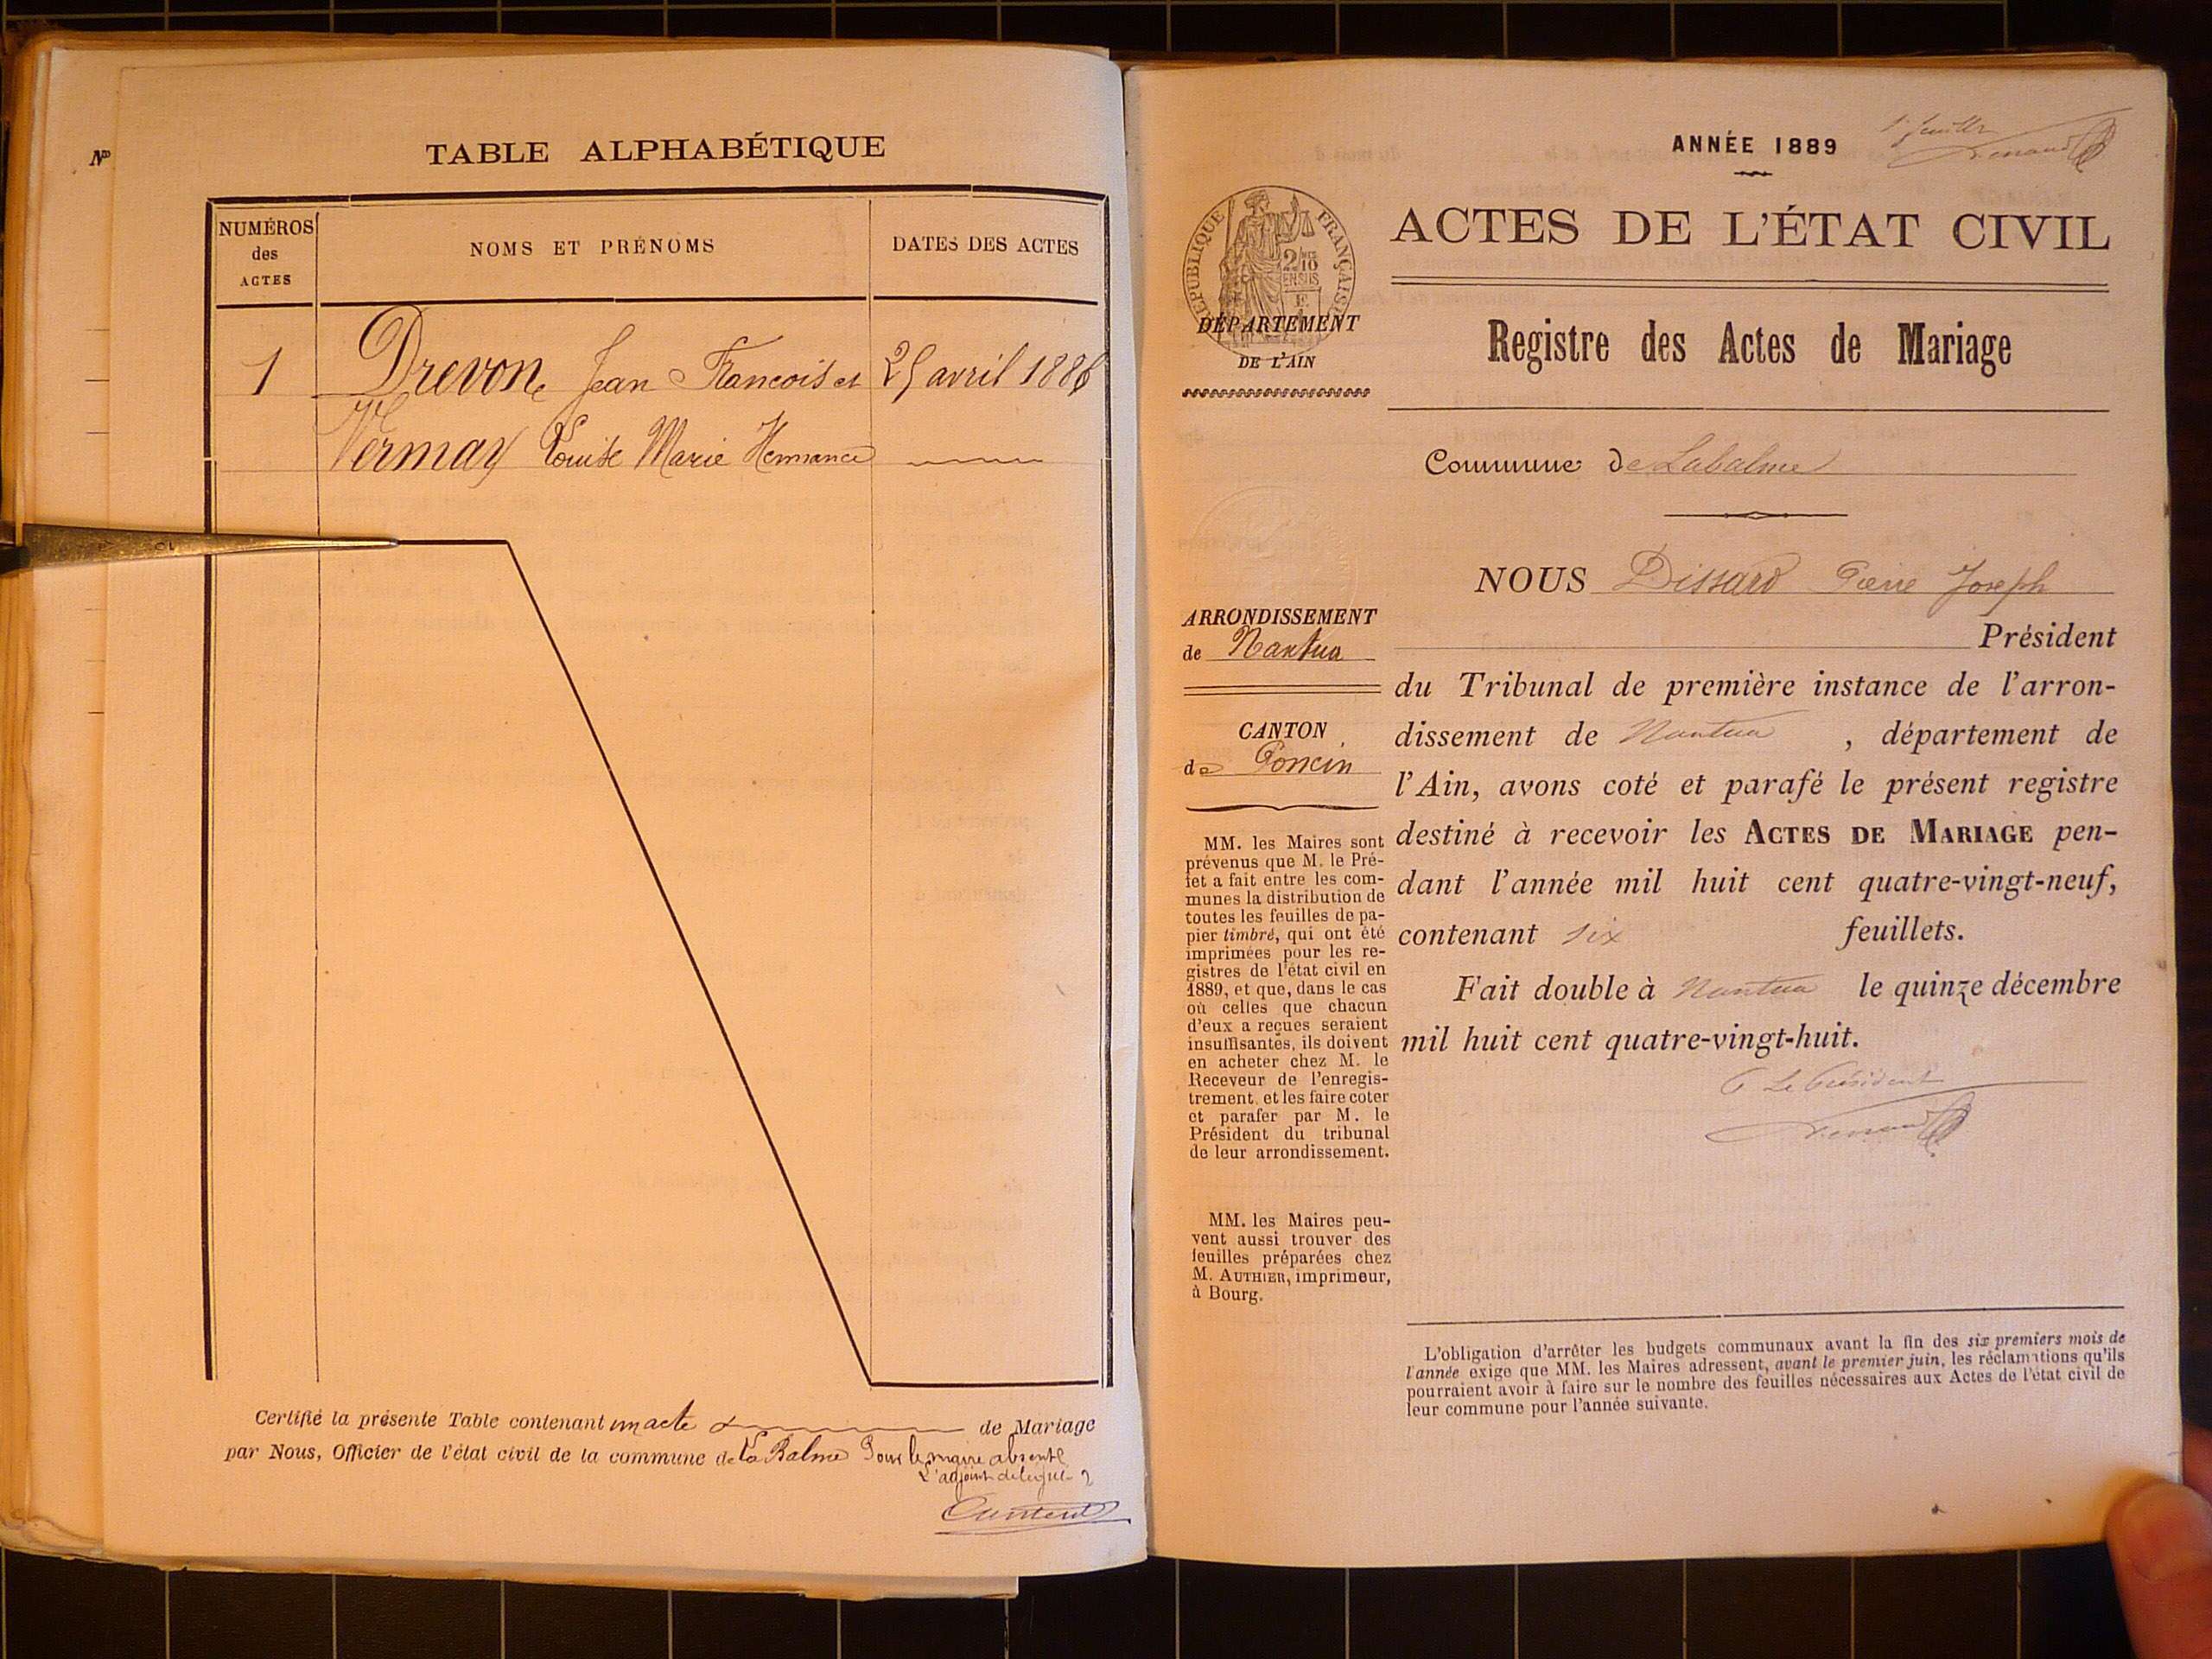 Nos
TABLE ALPHABÉTIQUE
NUMÉROS
des
ACTES
NOMS ET PRÉNOMS
DATES DES ACTES
1
Drevon Jean Francois et
25 avril 1888
Vermay Louise Marie Hermance
Certifié la présente Table contenant un acte de Mariage
par Nous, Officier de l'état civil de la commune de La Balme Pour le maire absent
L'adjoint délégué
ANNÉE 1889
1r feuillet
RÉPUBLIQUE FRANÇAISE
2/10
EN SUS
DÉPARTEMENT
DE L'AIN
ACTES DE L'ÉTAT CIVIL
Registre des Actes de Mariage
Commune de Labalme
ARRONDISSEMENT
de Nantua
CANTON
de Poncin
MM. les Maires sont
prévenus que M. le Pré-
fet a fait entre les com-
munes la distribution de
toutes les feuilles de pa-
pier timbré, qui ont été
imprimées pour les re-
gistres de l'état civil en
1889, et que, dans le cas
où celles que chacun
d'eux a reçues seraient
insuffisantes, ils doivent
en acheter chez M. le
Receveur de l'enregis-
trement, et les faire coter
et parafer par M. le
Président du tribunal
de leur arrondissement.
MM. les Maires peu-
vent aussi trouver des
feuilles préparées chez
M. AUTHIER, imprimeur,
à Bourg.
NOUS Dissard Pierre Joseph
Président
du Tribunal de première instance de l'arron-
dissement de Nantua, département de
l'Ain, avons coté et parafé le présent registre
destiné à recevoir les ACTES DE MARIAGE pen-
dant l'année mil huit cent quatre-vingt-neuf,
contenant six feuillets.
Fait double à Nantua le quinze décembre
mil huit cent quatre-vingt-huit.
P Le Président
L'obligation d'arrêter les budgets communaux avant la fin des six premiers mois de
l'année exige que MM. les Maires adressent, avant le premier juin, les réclamations qu'ils
pourraient avoir à faire sur le nombre des feuilles nécessaires aux Actes de l'état civil de
leur commune pour l'année suivante.